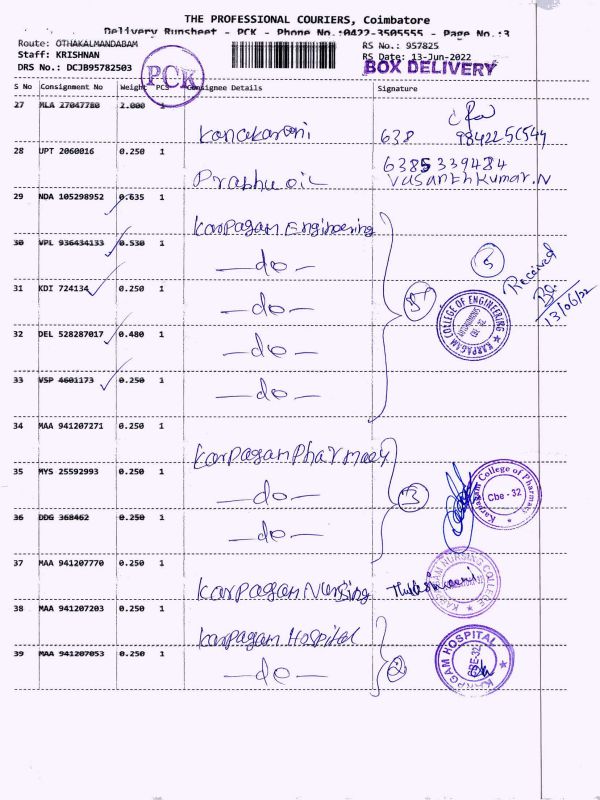 THE PROFESSIONAL COURIERS, Coimbatore
Delivery Runsheet - PCK - Phone No.:0422-3505555 - Page No.:3
Route: OTHAKALMANDABAM
RS No.: 957825
Staff: KRISHNAN
RS Date: 13-Jun-2022
DRS No.: DCJB95782503
PCK
BOX DELIVERY
S No Consignment No Weight PCS Consignee Details Signature
27 MLA 27047780 2.000 1
638 9842256544
28 UPT 2060016 0.250 1 Prabhu oil
6385339484
Vasanthkumar.N
29 NDA 105298952 0.635 1 Karpagam Engineering
30 VPL 936434133 0.530 1 -do-
31 KDI 724134 0.250 1 -do-
32 DEL 528287017 0.480 1 -do-
33 VSP 4601173 0.250 1 -do-
5
5
Received
13/06/22
KARPAGAM COLLEGE OF ENGINEERING
AUTONOMOUS
CBE-32
34 MAA 941207271 0.250 1 Karpagam Pharmacy
35 MYS 25592993 0.250 1 -do-
36 DDG 368462 0.250 1 -do-
3
Karpagam College of Pharmacy
Cbe - 32
37 MAA 941207770 0.250 1 Karpagam Nursing
KARPAGAM NURSING COLLEGE
38 MAA 941207203 0.250 1 Karpagam Hospital
39 MAA 941207053 0.250 1 -do-
2
KARPAGAM HOSPITAL
CBE-32